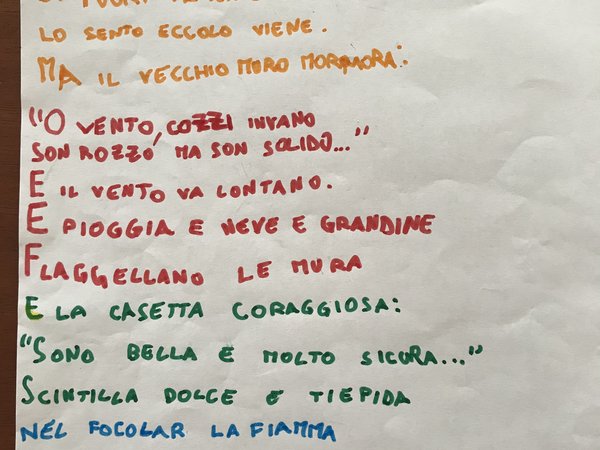 LO SENTO ECCOLO VIENE.
MA IL VECCHIO MURO MORMORA:
"O VENTO, COZZI INVANO
SON ROZZO, MA SON SOLIDO..."
E IL VENTO VA LONTANO.
E PIOGGIA E NEVE E GRANDINE
FLAGGELLANO LE MURA
E LA CASETTA CORAGGIOSA:
"SONO BELLA E MOLTO SICURA..."
SCINTILLA DOLCE E TIEPIDA
NEL FOCOLAR LA FIAMMA